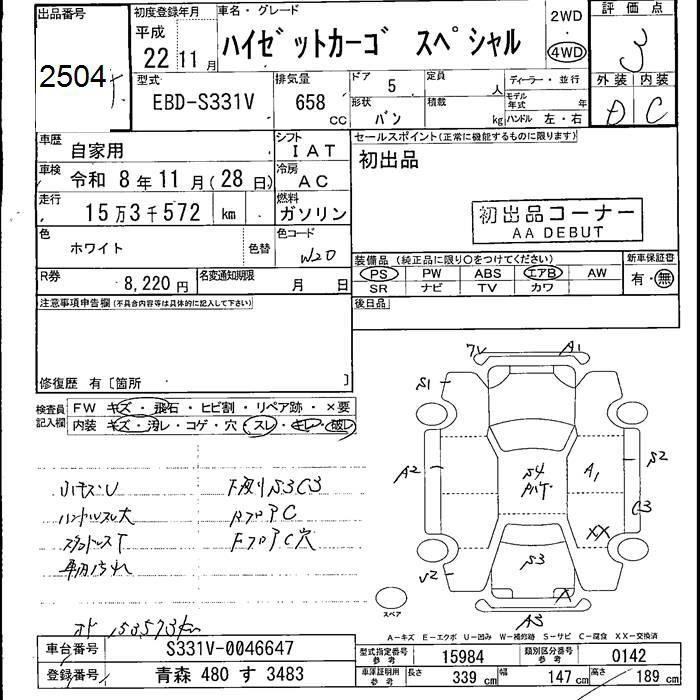 出品番号
2504
初度登録年月
平成
22 11 月
車名・グレード
ハイゼットカーゴ スペシャル
2WD
4WD
評価点
3
外装 内装
D C
型式
EBD-S331V
排気量
658 CC
ドア
5
定員
人
ディーラー・並行
形状
バン
積載
kg
モデル年式 年
ハンドル 左・右
車歴
自家用
シフト
IAT
セールスポイント(正常に機能するものに限ります)
初出品
車検
令和 8 年 11 月 ( 28 日)
冷房
AC
走行
15 万 3 千 572 km
燃料
ガソリン
初出品コーナー
AA DEBUT
色
ホワイト
色替
色コード
W20
装備品 (純正品に限り〇をつけてください)
新車保証書
PS PW ABS エアB AW
有・無
SR ナビ TV カワ
R券
8,220 円
名変通知期限
月 日
後日品
注意事項申告欄(不具合内容等は具体的に記入して下さい)
修復歴 有〔箇所 〕
検査員記入欄
FW キズ・飛石・ヒビ割・リペア跡・×要
内装 キズ・汚レ・コゲ・穴・スレ・キレ・破レ
A1
S1
A2
S4
A1
S2
C3
XX
S3
A3
下廻りS3C3
ハンドルスレ大
RフロアC
FフロアC穴
車内汚れ
153573km
スペア
A-キズ E-エクボ U-凹み W-補修跡 S-サビ C-腐食 XX-交換済
車台番号
S331V-0046647
登録番号
青森 480 す 3483
型式指定番号
参考
15984
類別区分番号
参考
0142
車庫証明用
参考
長さ
339 cm
幅
147 cm
高さ
189 cm